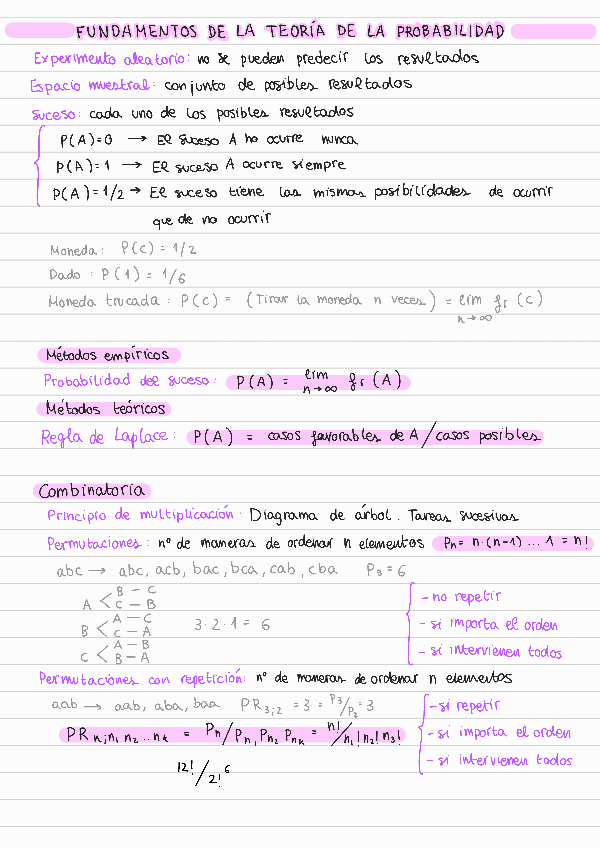 FUNDAMENTOS DE LA TEORÍA DE LA PROBABILIDAD
Experimento aleatorio: no se pueden predecir los resultados
Espacio muestral: conjunto de posibles resultados
Suceso: cada uno de los posibles resultados
P(A)=0 → El suceso A no ocurre nunca
P(A)=1 → El suceso A ocurre siempre
P(A)=1/2 → El suceso tiene las mismas posibilidades de ocurrir
que de no ocurrir
Moneda: P(C) = 1/2
Dado: P(1) = 1/6
Moneda trucada: P(C) = (Tirar la moneda n veces) = lim n→∞ fr (C)
Métodos empíricos
Probabilidad del suceso: P(A) = lim n→∞ fr (A)
Métodos teóricos
Regla de Laplace: P(A) = casos favorables de A / casos posibles
Combinatoria
Principio de multiplicación: Diagrama de árbol. Tareas sucesivas
Permutaciones: nº de maneras de ordenar n elementos Pn = n·(n-1) ... 1 = n!
abc → abc, acb, bac, bca, cab, cba P3 = 6
A < B – C
C – B
B < A – C
C – A
C < A – B
B – A
3·2·1 = 6
- no repetir
- si importa el orden
- si intervienen todos
Permutaciones con repetición: nº de maneras de ordenar n elementos
aab → aab, aba, baa PR3;2 = 3 = P3/P2 = 3
PR n;n1 n2 .. nk = Pn / Pn1 Pn2 Pnk = n! / n1! n2! n3!
- si repetir
- si importa el orden
- si intervienen todos
12! / 2!^6